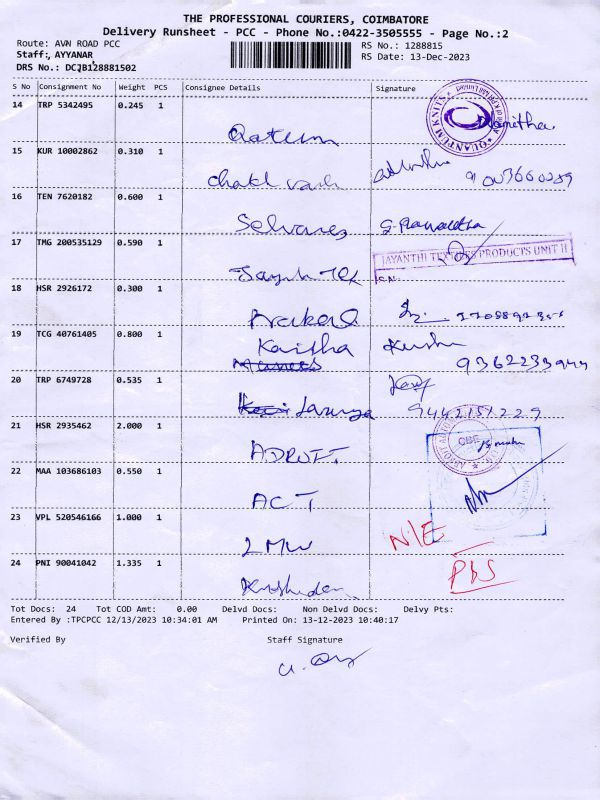 THE PROFESSIONAL COURIERS, COIMBATORE
Delivery Runsheet - PCC - Phone No.:0422-3505555 - Page No.:2
Route: AVN ROAD PCC
RS No.: 1288815
Staff:, AYYANAR
RS Date: 13-Dec-2023
DRS No.: DCJB128881502
S No Consignment No Weight PCS Consignee Details Signature
14 TRP 5342495 0.245 1
QUANTUM KNITS
15 KUR 10002862 0.310 1
16 TEN 7620182 0.600 1
Selvaraj
17 TMG 200535129 0.590 1
JAYANTHI TEXTILES PRODUCTS UNIT II
18 HSR 2926172 0.300 1
19 TCG 40761405 0.800 1
Kaisha
9362233944
20 TRP 6749728 0.535 1
Lavanya
9442157229
21 HSR 2935462 2.000 1
22 MAA 103686103 0.550 1
ACT
23 VPL 520546166 1.000 1
LMW
N/E
24 PNI 90041042 1.335 1
Tot Docs: 24 Tot COD Amt: 0.00 Delvd Docs: Non Delvd Docs: Delvy Pts:
Entered By :TPCPCC 12/13/2023 10:34:01 AM Printed On: 13-12-2023 10:40:17
Verified By Staff Signature